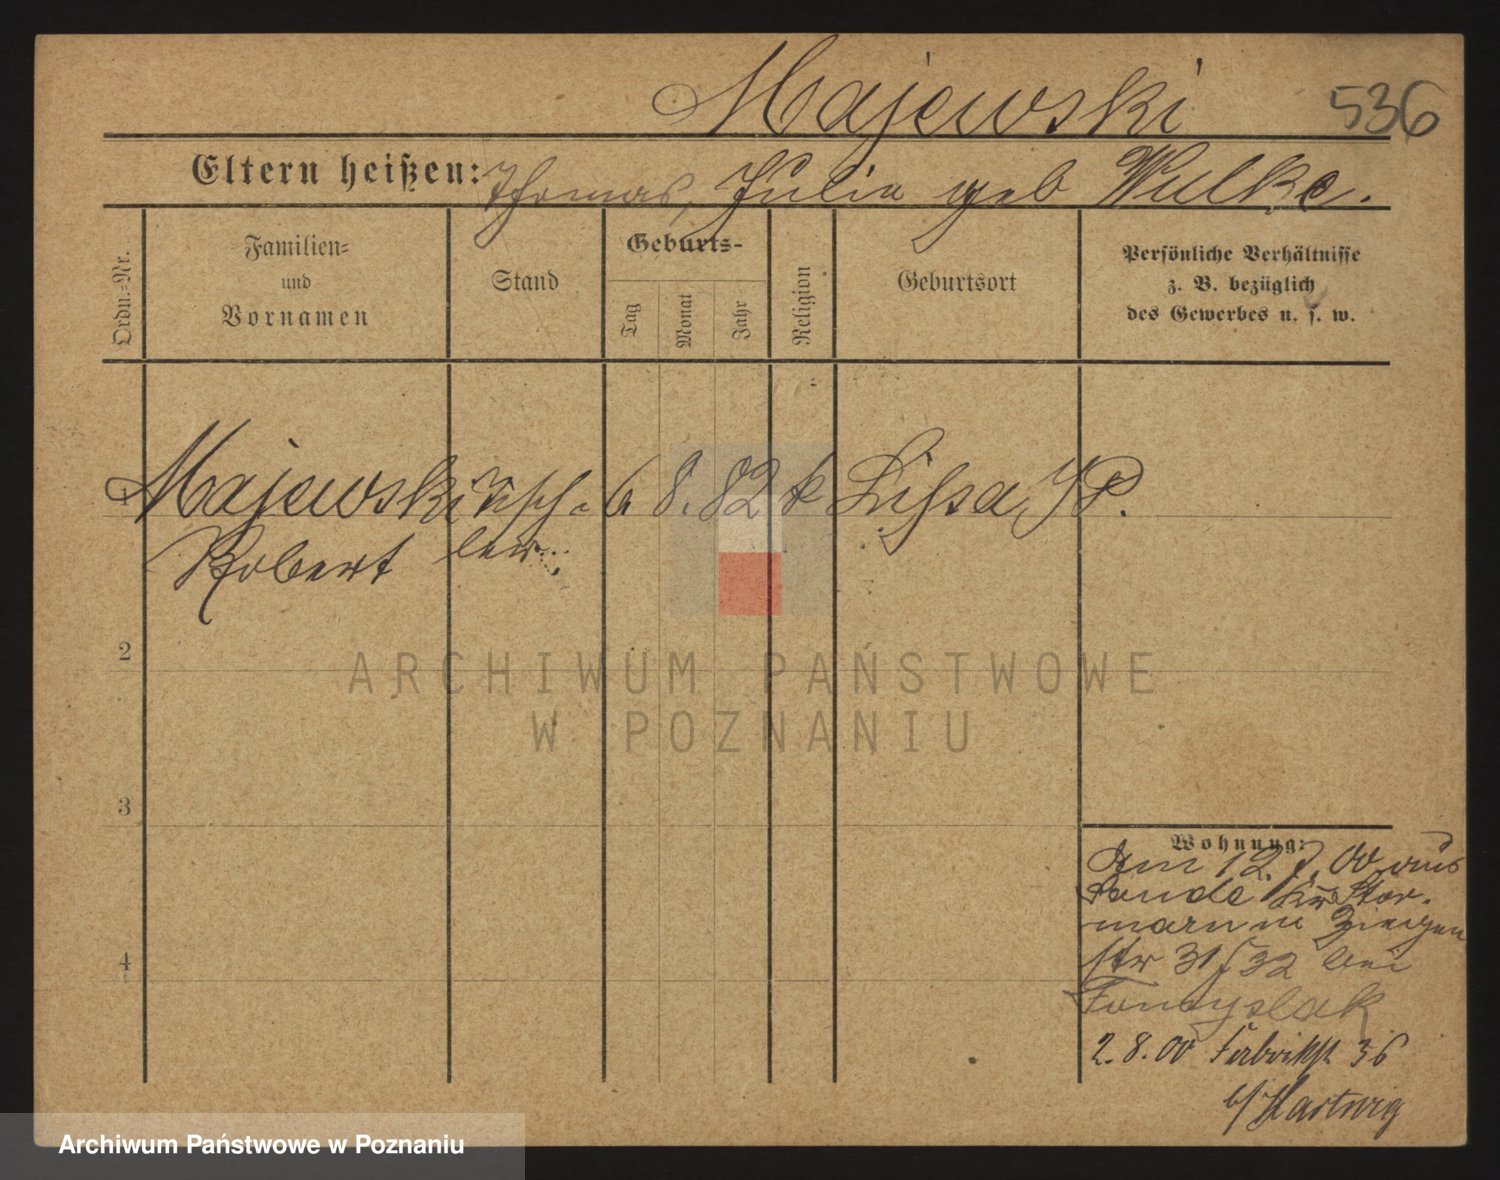 Majewski
536
Eltern heißen: Thomas, Julia geb Wulke.
Ordn.=Nr.
Familien=
und
Vornamen
Stand
Geburts-
Tag
Monat
Jahr
Religion
Geburtsort
Persönliche Verhältnisse
z. B. bezüglich
des Gewerbes u. s. w.
1
Majewski Tisch= 6 8. 82 k Lissa i/P.
Robert ler
2
3
4
Wohnung:
Am 12. 7. 00 aus
Sande Kr Stor.
marn n Ziegen
str 31/32 bei
2. 8. 00 Fabrikstr 36
b/ Hartwig
ARCHIWUM PAŃSTWOWE
W POZNANIU
Archiwum Państwowe w Poznaniu